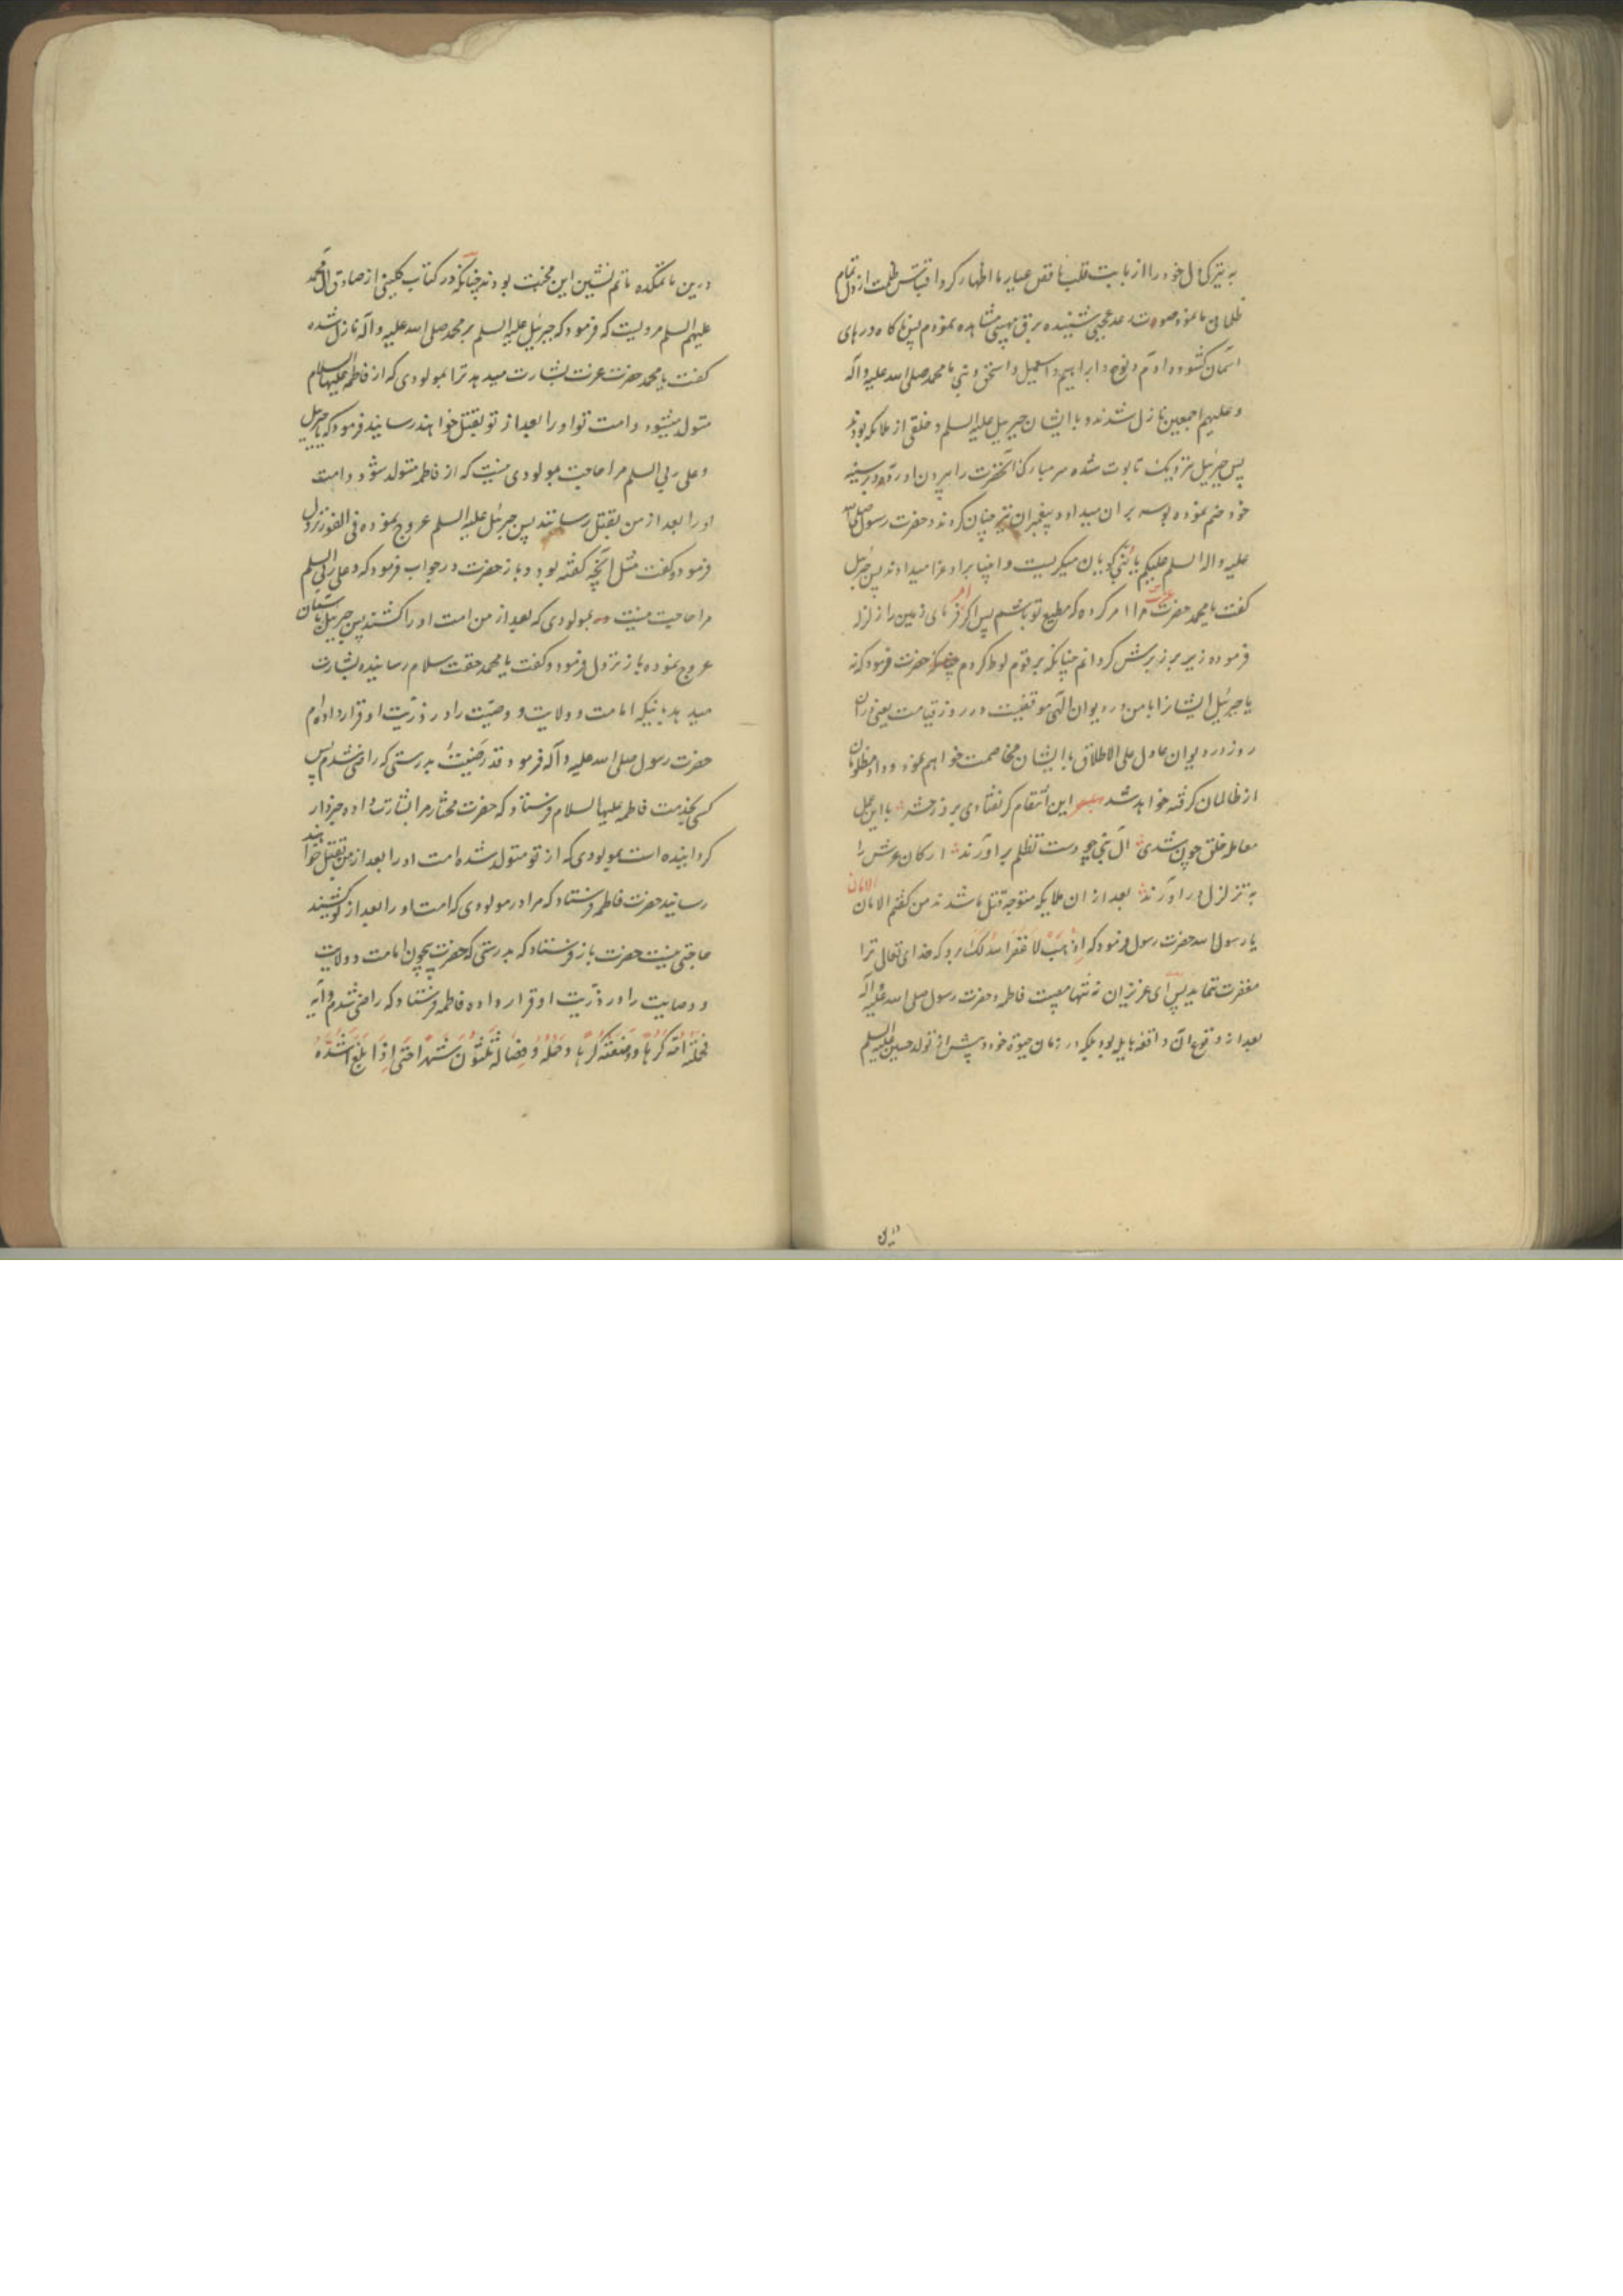 به تیرکی دل خود را از بابت قلب ناقص عیار ما اظهار کرد اقتباس ظلمت از دل تمام
ظلمان ما نمود صوت رعد عجیبی شنیده برق مهیبی مشاهده نمودم پس ناکاه درهای
آسمان کشوده و آدم و نوح و ابراهیم و اسمعیل و اسحق و نبی ما محمد صلی الله علیه و آله
و علیهم اجمعین نازل شدند و با ایشان جبرییل علیه السلم و خلقی از ملائکه بودند
پس جبرئیل نزدیک تابوت شده سر مبارک آنحضرت را بیرون آورده و بر سینه
خود ضم نموده بوسه بر آن میداد و پیغمبران نیز چنان کردند و حضرت رسول صلی الله
علیه واله السلم علیکم یا بنی کویان میکریست و انبیا بر او عزا میدادند پس جبرئیل
کفت یا محمد حضرت عزت مرا امر کرده که مطیع تو باشم پس اکر فرمای زمین را زلزله
فرموده زیر بر زبرش کردانم چنانکه بر قوم لوط کردم حضرت فرمود که نه
یا جبرئیل ایشانرا با من در دیوان الهی موقفیست در روز قیامت یعنی در آن
روز در دیوان عادل علی الاطلاق با ایشان مخاصمت خواهم نمود و داد مظلومان
از ظالمان کرفته خواهد شد این انتقام کر نفتادی بروز حشر با این عمل
معامله خلق چون شدی آل نبی چو دست تظلم بر آورند ارکان عرش را
به تزلزل در آورند بعد از آن ملایکه متوجه قتل ما شدند من کفتم الامان الامان
یا رسول الله حضرت رسول فرمود که اذهب لا غفر الله لک برو که خدای تعالی ترا
مغفرت نماید پس ای عزیزان نه تنها مصیبت فاطمه و حضرت رسول صلی الله علیه و آله
بعد از وقوع آن واقعه هایله بود بلکه در زمان حیوة خود و پیش از تولد حسین علیه السلم
درین
درین ماتمکده ماتم نشین این محنت بودند چنانکه در کتاب کلینی از صادق آل محمد
علیهم السلم مرویست که فرمود که جبرئیل علیه السلم بر محمد صلی الله علیه و آله نازل شده
کفت یا محمد حضرت عزت بشارت میدهد ترا بمولودی که از فاطمه علیها السلام
متولد میشود و امت تو او را بعد از تو بقتل خواهند رسانید فرمود که یا جبرییل
و علی ربی السلم مرا حاجت بمولودی نیست که از فاطمه متولد شود و امت
او را بعد از من بقتل رسانند پس جبرئیل علیه السلم عروج نموده فی الفور نزول
فرمود و کفت مثل آنچه کفته بود و باز حضرت در جواب فرمود که و علی ربی السلم
مرا حاجت نیست بمولودی که بعد از من امت او را کشند پس جبرییل باسمان
عروج نموده باز نزول فرمود و کفت یا محمد حقت سلام رسانیده بشارت
میدهد بانیکه امامت و ولایت و وصیت را در ذریت او قرار داده ام
حضرت رسول صلی الله علیه و آله فرمود قد رضیت بدرستی که راضی شدم پس
کسی بخدمت فاطمه علیها السلام فرستاد که حضرت مختار مرا بشارت داده و خبردار
کردانیده است بمولودی که از تو متولد شده امت او را بعد از من بقتل خواهند
رسانید حضرت فاطمه فرستاد که مرا در مولودی که امت او را بعد از تو کشند
حاجتی نیست حضرت باز فرستاد که بدرستی که حضرت بیچون امامت و ولایت
و وصایت را در ذریت او قرار داده فاطمه فرستاد که راضی شدم و آیه
فحملته امه کرها و وضعته کرها و حمله و فصاله ثلثون شهرا حتی اذا بلغ اشده